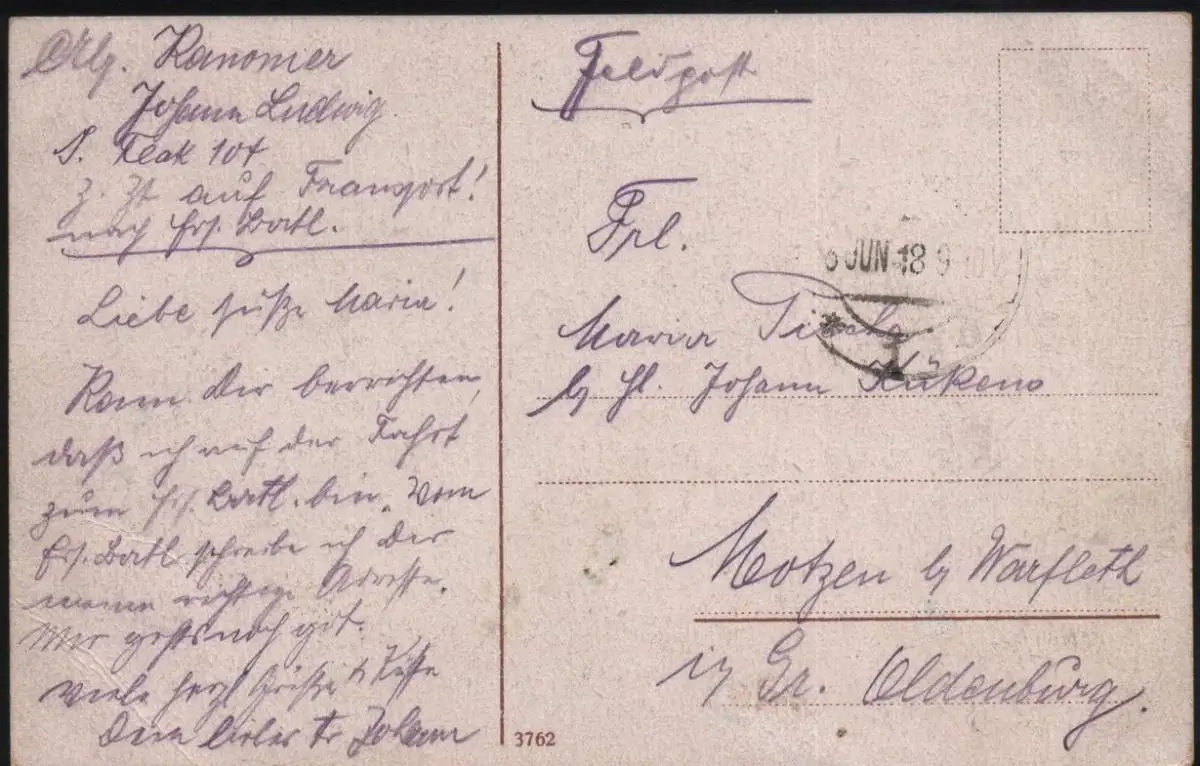 Abs. Kanonier
Johann Ludwig
S. Flak 104
z. Zt auf Transport!
nach Ers. Batl.
Liebe süße Maria!
Kann Dir berichten,
daß ich auf der Fahrt
zum Ers. Batl. bin. Vom
Ers. Batl schreibe ich Dir
meine richtige Adresse.
Mir gehts noch gut.
Viele herzl Grüße & Küsse
Dein lieber tr Johann
Feldpost
Frl.
JUN 18 9
Maria
b H. Johann Kükens
Motzen b Warfleth
i/ Gr. Oldenburg.
3762